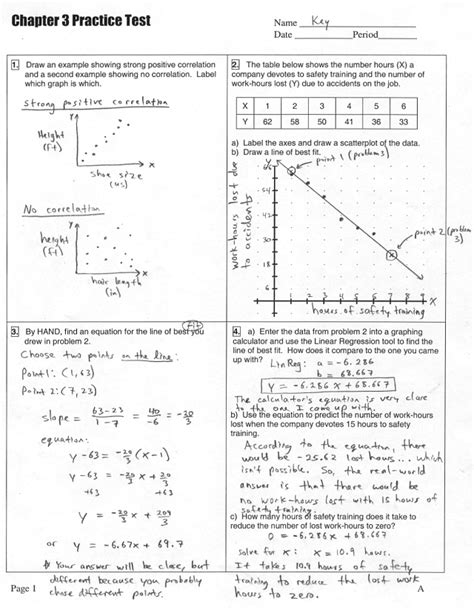 Chapter 3 Practice Test
Name Key
Date Period
1. Draw an example showing strong positive correlation
and a second example showing no correlation. Label
which graph is which.
strong positive correlation
Y
Height
(ft)
X
shoe size
(US)
No correlation
Y
height
(ft)
X
hair length
(in)
2. The table below shows the number hours (X) a
company devotes to safety training and the number of
work-hours lost (Y) due to accidents on the job.
X 1 2 3 4 5 6
Y 62 58 50 41 36 33
a) Label the axes and draw a scatterplot of the data.
b) Draw a line of best fit.
point 1 (problem 3)
work-hours lost due
to accidents
Y
66
54
42
30
18
6
point 2 (problem
3)
1 2 3 4 5 6 7 8 9 X
hours of safety training
3. By HAND, find an equation for the line of best you
(Fit)
drew in problem 2.
Choose two points on the line:
Point 1: (1, 63)
Point 2: (7, 23)
slope = 63-23 / 1-7 = 40 / -6 = -20 / 3
equation:
y - 63 = -20/3 (x - 1)
y - 63 = -20/3 x + 20/3
+63 +63
y = -20/3 x + 209/3
or y = -6.67x + 69.7
* Your answer will be close, but
different because you probably
chose different points.
4. a) Enter the data from problem 2 into a graphing
calculator and use the Linear Regression tool to find the
line of best fit. How does it compare to the one you came
up with?
LinReg: a = -6.286
b = 68.667
Y = -6.286 X + 68.667
The calculator's equation is very close
to the one I came up with.
b) Use the equation to predict the number of work-hours
lost when the company devotes 15 hours to safety
training.
According to the equation, there
would be -25.62 lost hours... which
isn't possible. So, the real-world
answer is that there would be
no work-hours lost with 15 hours of
safety training.
c) How many hours of safety training does it take to
reduce the number of lost work-hours to zero?
0 = -6.286x + 68.667
solve for x: x = 10.9 hours.
It takes 10.9 hours of safety
training to reduce the lost work
hours to zero.
Page 1
A